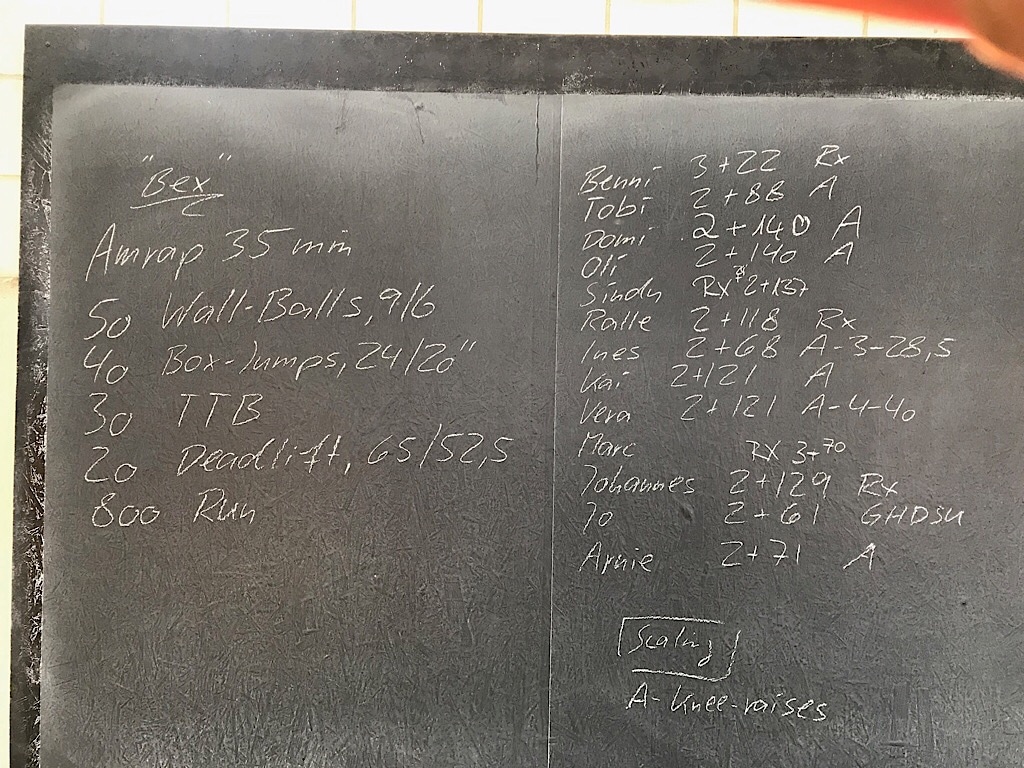 "Bex"
Amrap 35 min
50 Wall-Balls, 9/6
40 Box-Jumps, 24/20"
30 TTB
20 Deadlift, 65/52,5
800 Run
Benni 3+22 Rx
Tobi 2+88 A
Domi 2+140 A
Oli 2+140 A
Sindy RX 2+137
Ralle 2+118 Rx
Ines 2+68 A-3-28,5
Kai 2+121 A
Vera 2+121 A-4-40
Marc RX 3+70
Johannes 2+129 Rx
Jo 2+61 GHDSU
Arnie 2+71 A
Scaling
A- Knee-raises